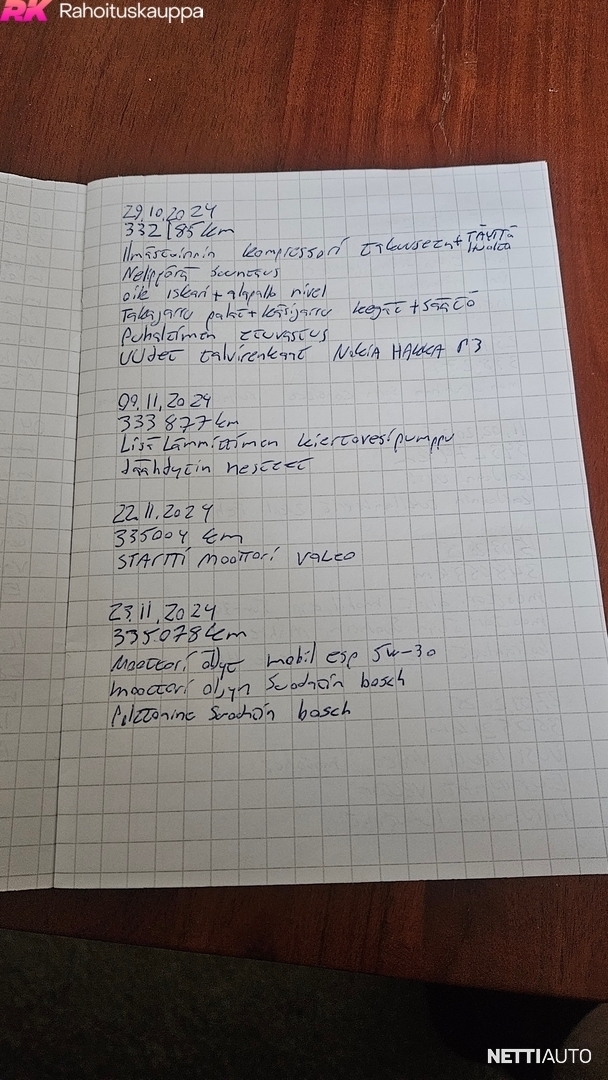 RK Rahoituskauppa
29.10.2024
332185km
Ilmastoinnin kompressori + TÄYTTÖ
Nelipyörä suuntaus
oik iskari + alapallo nivel
Takajarru palat + käsijarru kegät + säätö
Puhaltimen etuvastus
UUdet talvirenkaat NOKIA HAKKA R3
09.11.2024
333877km
Lisä Lämmittimen kiertovesipumppu
Jäähdytin nesteet
22.11.2024
335004 km
STARTTI moottori valeo
23.11.2024
335078km
Moottori öljyt mobil esp 5w-30
moottori öljyn Suodatin bosch
Suodatin bosch
NETTIAUTO